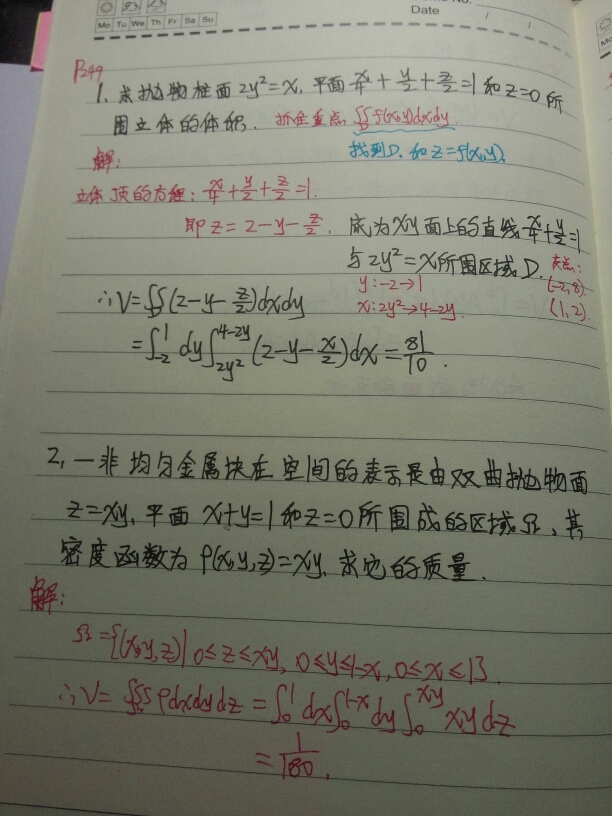 Date
Mo Tu We Th Fr Sa Su
P249
1. 求抛物柱面2y²=x, 平面x/4+y/2+z/2=1和z=0所
围立体的体积. 抓住重点 ∬_D f(x,y)dxdy
解: 找到D. 和z=f(x,y).
立体顶的方程: x/4+y/2+z/2=1.
即z=2-y-z/2. 底为xy面上的直线x/4+y/2=1
与2y²=x所围区域D. 交点:
y:-2→1 (-2,8).
x:2y²→4-2y. (1,2).
∴V=∬_D(2-y-z/2)dxdy
=∫_{-2}^{1}dy∫_{2y²}^{4-2y}(2-y-x/2)dx=81/10.
2, 一非均匀金属块在空间的表示是由双曲抛物面
z=xy, 平面x+y=1和z=0所围成的区域Ω, 其
密度函数为ρ(x,y,z)=xy, 求它的质量.
解:
Ω={(x,y,z)|0≤z≤xy, 0≤y≤1-x, 0≤x≤1}.
∴V=∭_Ω ρdxdydz=∫_0^1dx∫_0^{1-x}dy∫_0^{xy}xydz
=1/180.